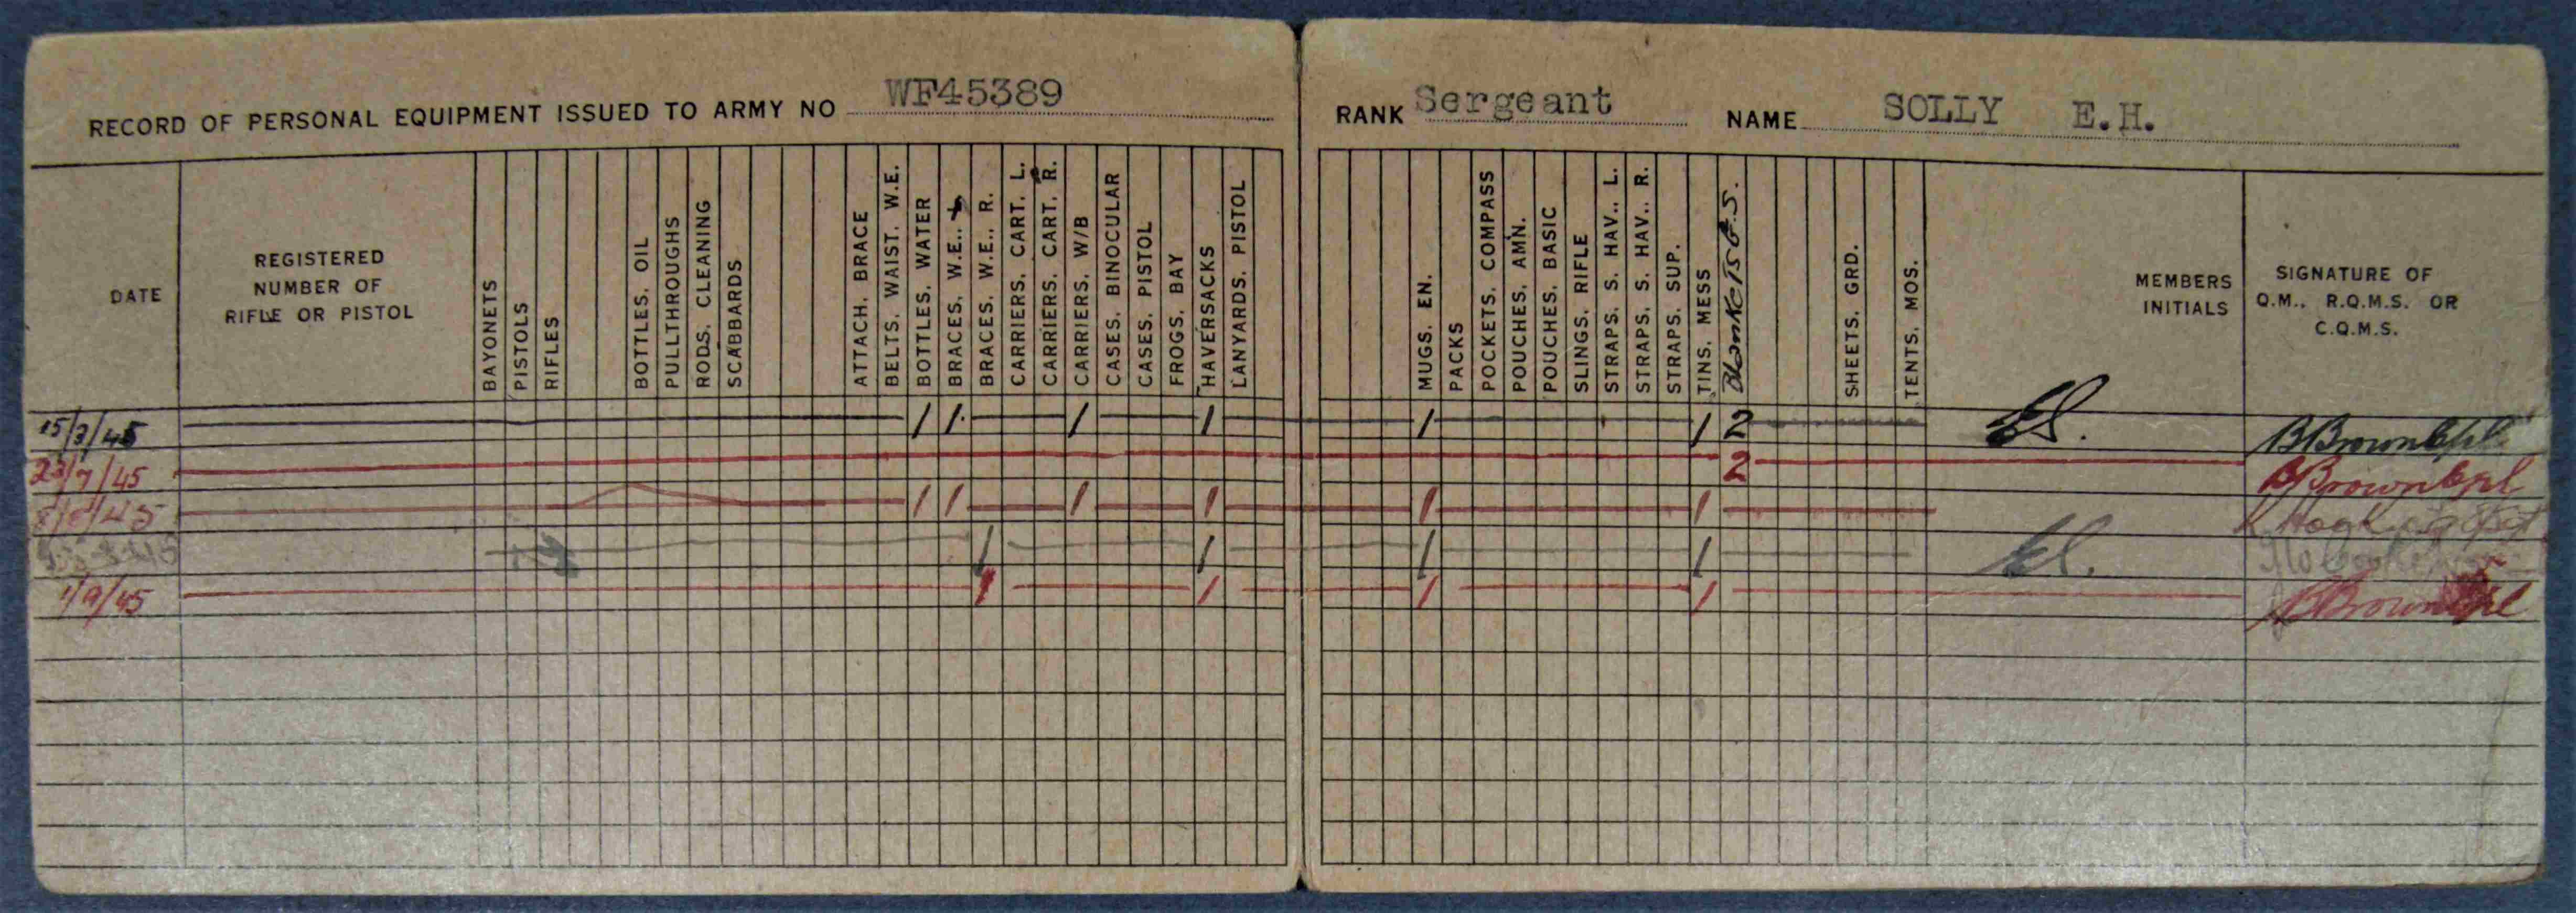 RECORD OF PERSONAL EQUIPMENT ISSUED TO ARMY NO WF45389 RANK Sergeant NAME SOLLY E.H.
DATE
REGISTERED
NUMBER OF
RIFLE OR PISTOL
BAYONETS
PISTOLS
RIFLES
BOTTLES, OIL
PULLTHROUGHS
RODS, CLEANING
SCABBARDS
ATTACH, BRACE
BELTS, WAIST, W.E.
BOTTLES, WATER
BRACES, W.E.,
BRACES, W.E., R.
CARRIERS, CART, L.
CARRIERS, CART, R.
CARRIERS, W/B
CASES, BINOCULAR
CASES, PISTOL
FROGS, BAY
HAVERSACKS
LANYARDS, PISTOL
MUGS, EN.
PACKS
POCKETS, COMPASS
POUCHES, AMN.
POUCHES, BASIC
SLINGS, RIFLE
STRAPS, S. HAV., L.
STRAPS, S. HAV., R.
STRAPS, SUP.
TINS, MESS
Blankets G.S.
SHEETS, GRD.
TENTS, MOS.
MEMBERS
INITIALS
SIGNATURE OF
Q.M., R.Q.M.S. OR
C.Q.M.S.
15/3/45 1 1 1 1 1 1 2 ES. B Brown Cpl
23/7/45 2 B Brown Cpl
8/8/45 1 1 1 1 1 1
1 1 1 1 ES.
1/9/45 1 1 1 1 B Brown Cpl